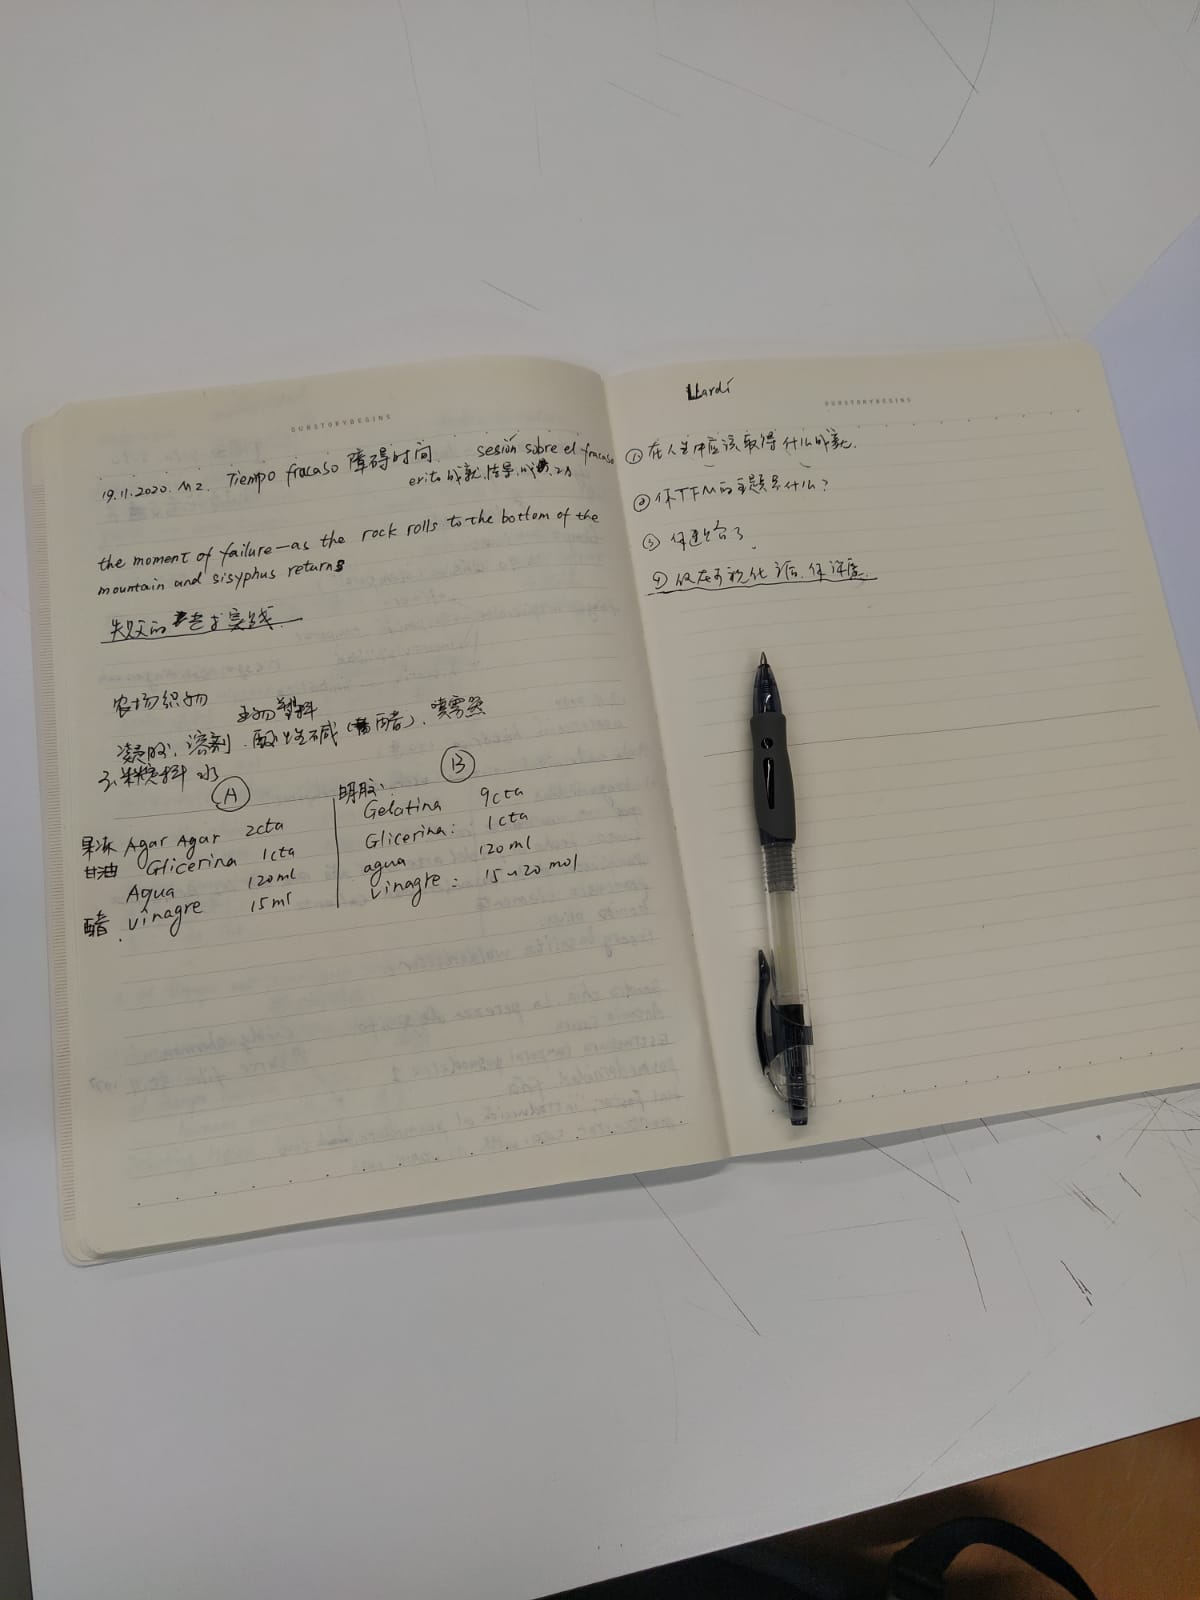 OURSTORYBEGINS
19.11.2020. M2. Tiempo fracaso 障碍时间. sesión sobre el fracaso
the moment of failure—as the rock rolls to the bottom of the
mountain and sisyphus returns
失败的艺术实践
农场织物
生物塑料
凝胶、溶剂、酸性碱(醋)、喷雾
水
A
果冻 Agar Agar 2cta
甘油 Glicerina 1cta
Aqua 120ml
醋. vinagre 15ml
B
明胶:
Gelatina 9cta
Glicerina: 1cta
agua 120ml
vinagre: 15~20mol
LLardi
OURSTORYBEGINS
① 在人生中应该取得什么成就.
② 你TFM的主题是什么?
③
④ 仅在可视化后.